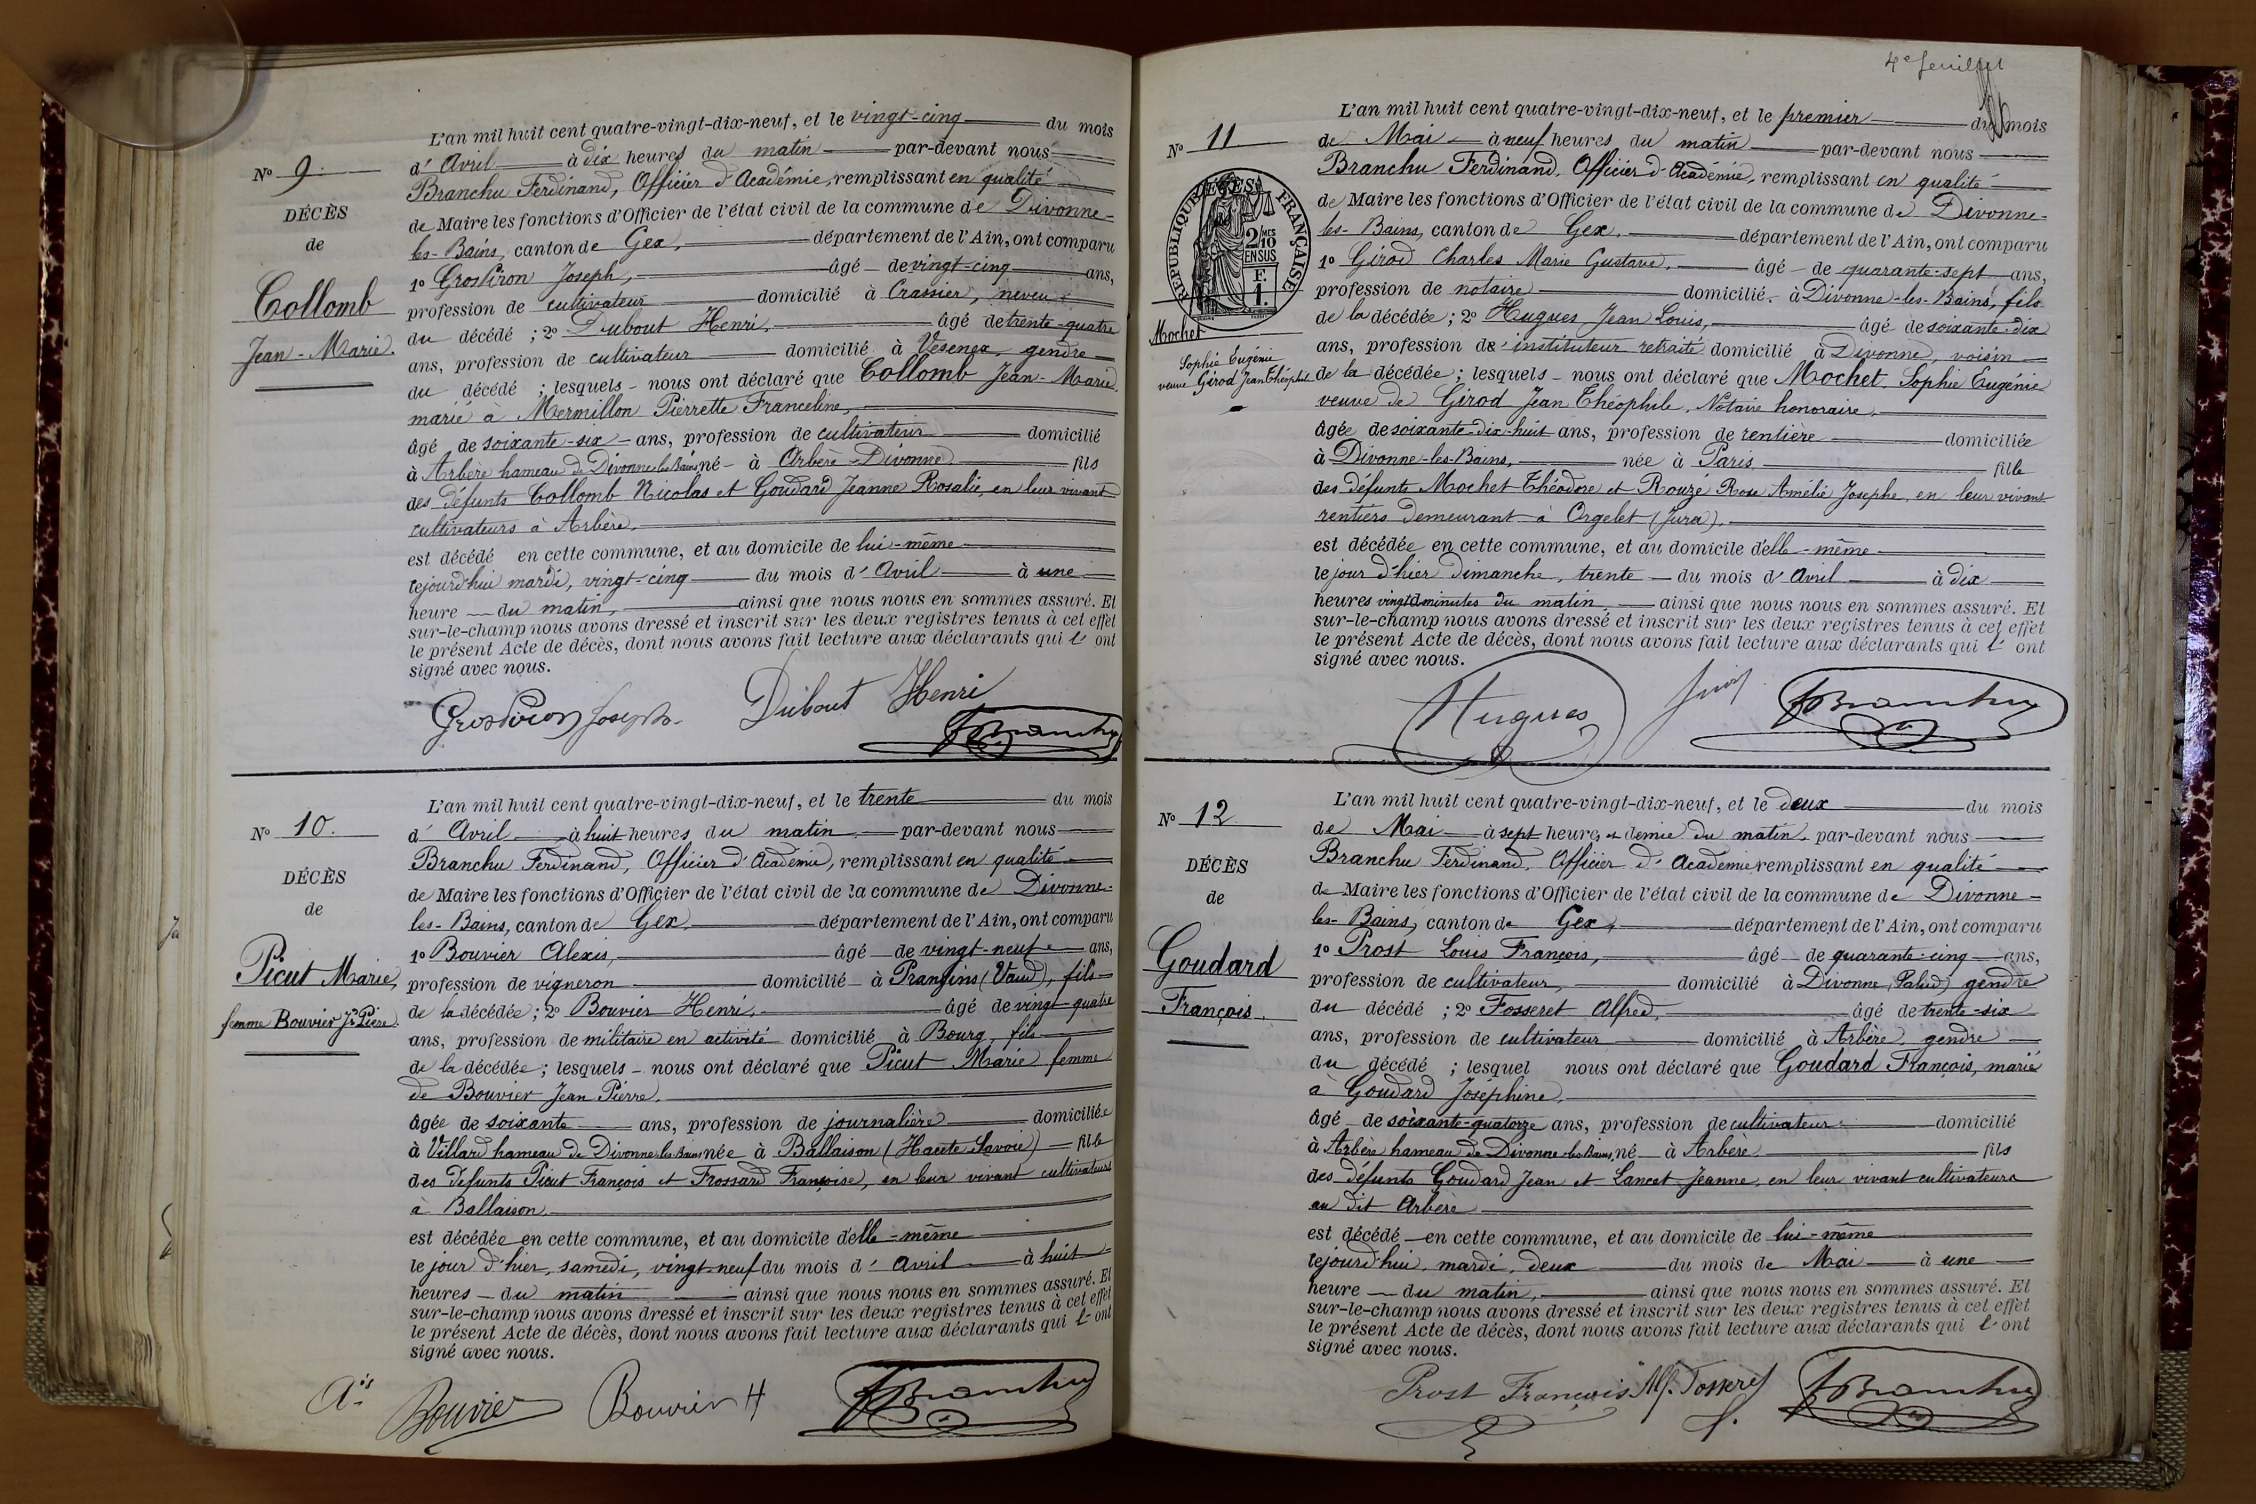 L'an mil huit cent quatre-vingt-dix-neuf, et le vingt-cinq du mois
d'Avril à dix heures du matin par-devant nous
Branchu Ferdinand, Officier d'Académie, remplissant en qualité
de Maire les fonctions d'Officier de l'état civil de la commune de Divonne-
les-Bains, canton de Gex, département de l'Ain, ont comparu
1º Grospiron Joseph, âgé de vingt-cinq ans,
profession de cultivateur domicilié à Crassier, neveu
du décédé ; 2º Dubout Henri, âgé de trente-quatre
ans, profession de cultivateur domicilié à Vesenex, gendre
du décédé ; lesquels nous ont déclaré que Collomb Jean-Marie
marié à Mermillon Pierrette Franceline,
âgé de soixante-six ans, profession de cultivateur domicilié
à Arbère hameau de Divonne-les-Bains né à Arbère-Divonne fils
des défunts Collomb Nicolas et Goudard Jeanne Rosalie, en leur vivant
cultivateurs à Arbère.
est décédé en cette commune, et au domicile de lui-même
lejourd'hui mardi, vingt-cinq du mois d'Avril à une
heure du matin, ainsi que nous nous en sommes assuré. Et
sur-le-champ nous avons dressé et inscrit sur les deux registres tenus à cet effet
le présent Acte de décès, dont nous avons fait lecture aux déclarants qui l'ont
signé avec nous.
Nº 9
DÉCÈS
de
Collomb
Jean-Marie.
Grospiron Joseph Dubout Henri
FBranchu
L'an mil huit cent quatre-vingt-dix-neuf, et le trente du mois
d'Avril à huit heures du matin par-devant nous
Branchu Ferdinand, Officier d'Académie, remplissant en qualité
de Maire les fonctions d'Officier de l'état civil de la commune de Divonne-
les-Bains, canton de Gex département de l'Ain, ont comparu
1º Bouvier Alexis, âgé de vingt-neuf ans,
profession de vigneron domicilié à Prangins (Vaud), fils
de la décédée ; 2º Bouvier Henri, âgé de vingt-quatre
ans, profession de militaire en activité domicilié à Bourg, fils
de la décédée ; lesquels nous ont déclaré que Picut Marie femme
de Bouvier Jean Pierre,
âgée de soixante ans, profession de journalière domiciliée
à Villard hameau de Divonne-les-Bains née à Ballaison (Haute Savoie) fille
des défunts Picut François et Frossard Françoise, en leur vivant cultivateurs
à Ballaison.
est décédée en cette commune, et au domicile d'elle-même
le jour d'hier, samedi, vingt-neuf du mois d'Avril à huit
heures du matin ainsi que nous nous en sommes assuré. Et
sur-le-champ nous avons dressé et inscrit sur les deux registres tenus à cet effet
le présent Acte de décès, dont nous avons fait lecture aux déclarants qui l'ont
signé avec nous.
Nº 10.
DÉCÈS
de
Picut Marie,
femme Bouvier Jn Pierre.
Ais Bouvier Bouvier H FBranchu
4e feuillet
L'an mil huit cent quatre-vingt-dix-neuf, et le premier du mois
de Mai à neuf heures du matin par-devant nous
Branchu Ferdinand, Officier d'Académie, remplissant en qualité
de Maire les fonctions d'Officier de l'état civil de la commune de Divonne-
les-Bains, canton de Gex, département de l'Ain, ont comparu
1º Girod Charles Marie Gustave, âgé de quarante-sept ans,
profession de notaire domicilié à Divonne-les-Bains, fils
de la décédée ; 2º Hugues Jean Louis, âgé de soixante-dix
ans, profession de instituteur retraité domicilié à Divonne, voisin
de la décédée ; lesquels nous ont déclaré que Mochet Sophie Eugénie
veuve de Girod Jean Théophile, Notaire honoraire,
âgée de soixante-dix-huit ans, profession de rentière domiciliée
à Divonne-les-Bains, née à Paris fille
des défunts Mochet Théodore et Rouzé Rose Amélie Josephe, en leur vivant
rentiers demeurant à Orgelet (Jura).
est décédée en cette commune, et au domicile d'elle-même
le jour d'hier dimanche, trente du mois d'Avril à dix
heures vingt minutes du matin, ainsi que nous nous en sommes assuré. Et
sur-le-champ nous avons dressé et inscrit sur les deux registres tenus à cet effet
le présent Acte de décès, dont nous avons fait lecture aux déclarants qui l'ont
signé avec nous.
Nº 11
RÉPUBLIQUE FRANÇAISE
2/10 MES EN SUS
F. 1.
Mochet
Sophie Eugénie
veuve Girod Jean Théophile
Hugues FBranchu
L'an mil huit cent quatre-vingt-dix-neuf, et le deux du mois
de Mai à sept heures et demie du matin par-devant nous
Branchu Ferdinand, Officier d'Académie remplissant en qualité
de Maire les fonctions d'Officier de l'état civil de la commune de Divonne-
les-Bains, canton de Gex, département de l'Ain, ont comparu
1º Prost Louis François, âgé de quarante-cinq ans,
profession de cultivateur, domicilié à Divonne (Palud) gendre
du décédé ; 2º Fosseret Alfred, âgé de trente-six
ans, profession de cultivateur domicilié à Arbère, gendre
du décédé ; lesquel nous ont déclaré que Goudard François, marié
à Goudard Joséphine,
âgé de soixante-quatorze ans, profession de cultivateur domicilié
à Arbère hameau de Divonne-les-Bains, né à Arbère fils
des défunts Goudard Jean et Lancet Jeanne, en leur vivant cultivateurs
au dit Arbère
est décédé en cette commune, et au domicile de lui-même
lejourd'hui, mardi, deux du mois de Mai à une
heure du matin, ainsi que nous nous en sommes assuré. Et
sur-le-champ nous avons dressé et inscrit sur les deux registres tenus à cet effet
le présent Acte de décès, dont nous avons fait lecture aux déclarants qui l'ont
signé avec nous.
Nº 12
DÉCÈS
de
Goudard
François.
Prost François Alf. Fosseret FBranchu